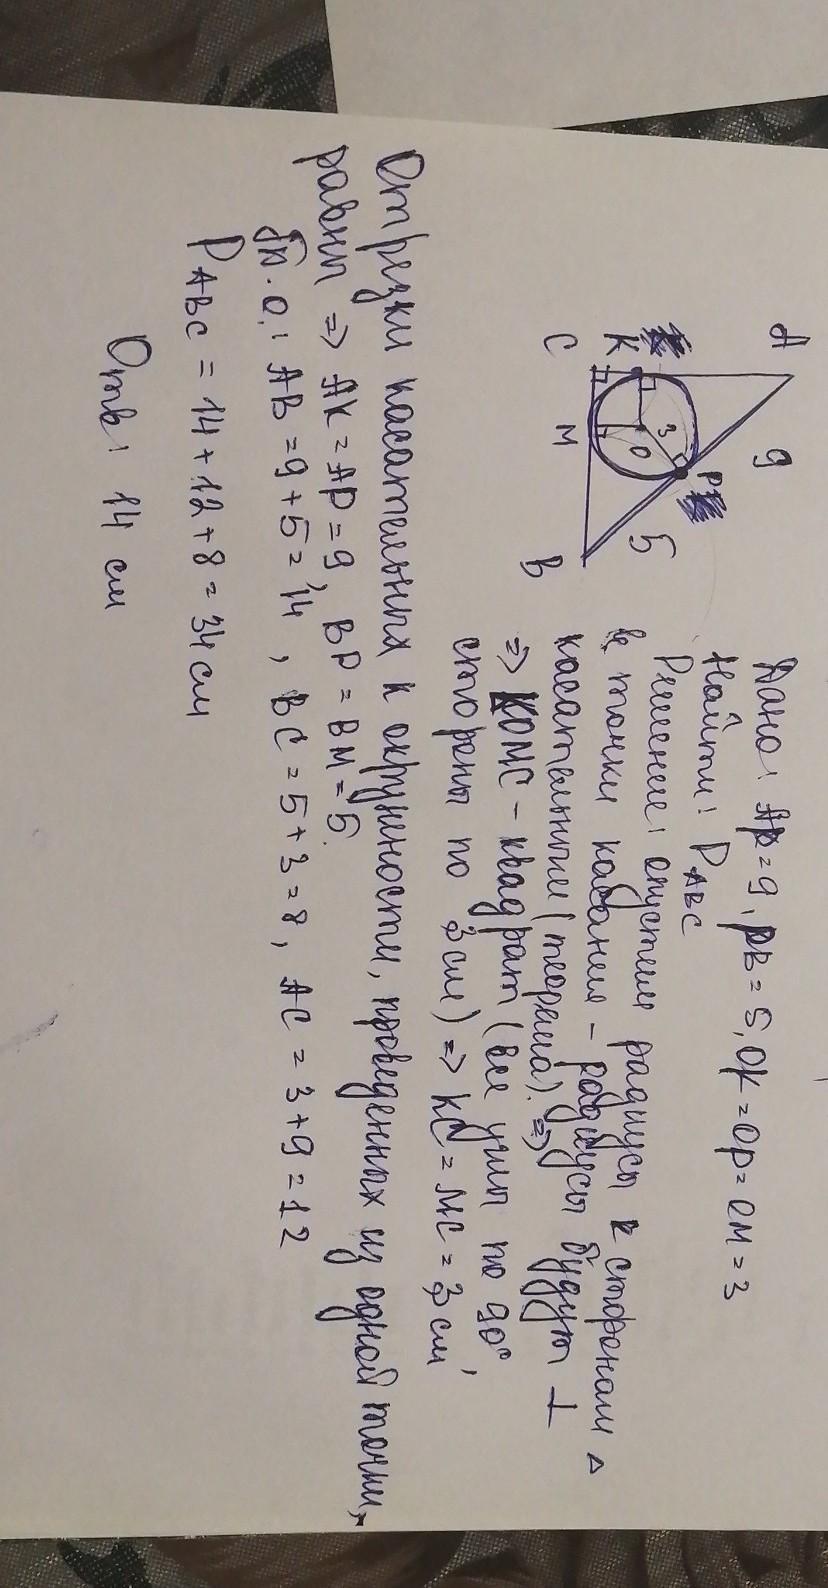 A
9
P
3
K
O
5
C
M
B
Дано: AP=9, PB=5, OK=OP=OM=3
Найти: P ABC
Решение: опустим радиусы к сторонам △
в точки касания – радиусы будут ⊥
касательным (теорема). =>
=> KOMC – квадрат (все углы по 90°,
стороны по 3 см) => KC = MC = 3 см
Отрезки касательных к окружности, проведенных из одной точки,
равны => AK = AP = 9, BP = BM = 5.
AB = 9+5 = 14, BC = 5+3 = 8, AC = 3+9 = 12
P ABC = 14+12+8 = 34 см
Отв: 14 см